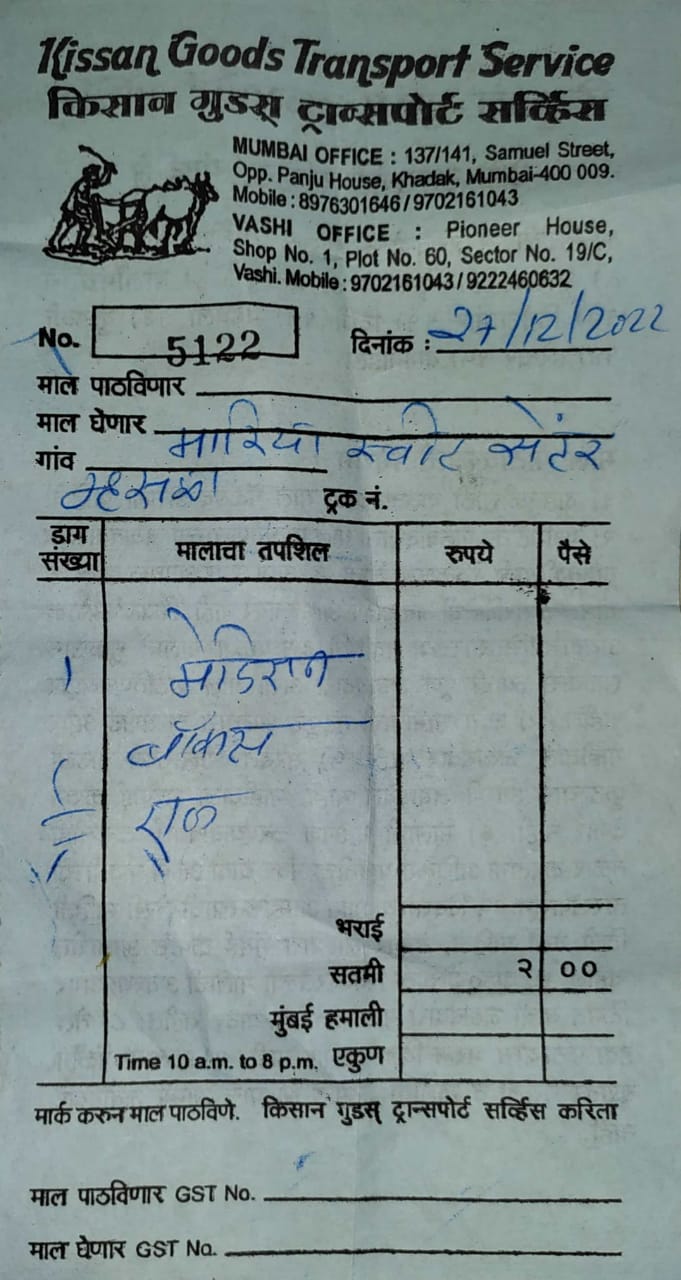 Kissan Goods Transport Service
किसान गुडस् ट्रान्सपोर्ट सर्व्हिस
MUMBAI OFFICE : 137/141, Samuel Street,
Opp. Panju House, Khadak, Mumbai-400 009.
Mobile : 8976301646 / 9702161043
VASHI OFFICE : Pioneer House,
Shop No. 1, Plot No. 60, Sector No. 19/C,
Vashi. Mobile : 9702161043 / 9222460632
No. 5122 दिनांक : 27/12/2022
माल पाठविणार
माल घेणार मारिया स्वीट सेंटर
गांव म्हसळा ट्रक नं.
डाग संख्या मालाचा तपशिल रुपये पैसे
1
बॉकस
भराई
सतमी २ ००
मुंबई हमाली
Time 10 a.m. to 8 p.m. एकुण
मार्क करुन माल पाठविणे. किसान गुडस् ट्रान्सपोर्ट सर्व्हिस करिता
माल पाठविणार GST No.
माल घेणार GST No.